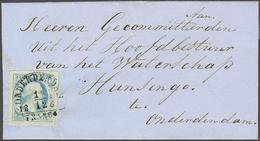 Aan
Heeren Gecommitteerden
uit het Hoofdbestuur
van het Waterschap
Hunsingo.
te
Onderdendam.
ONDERDENDAM